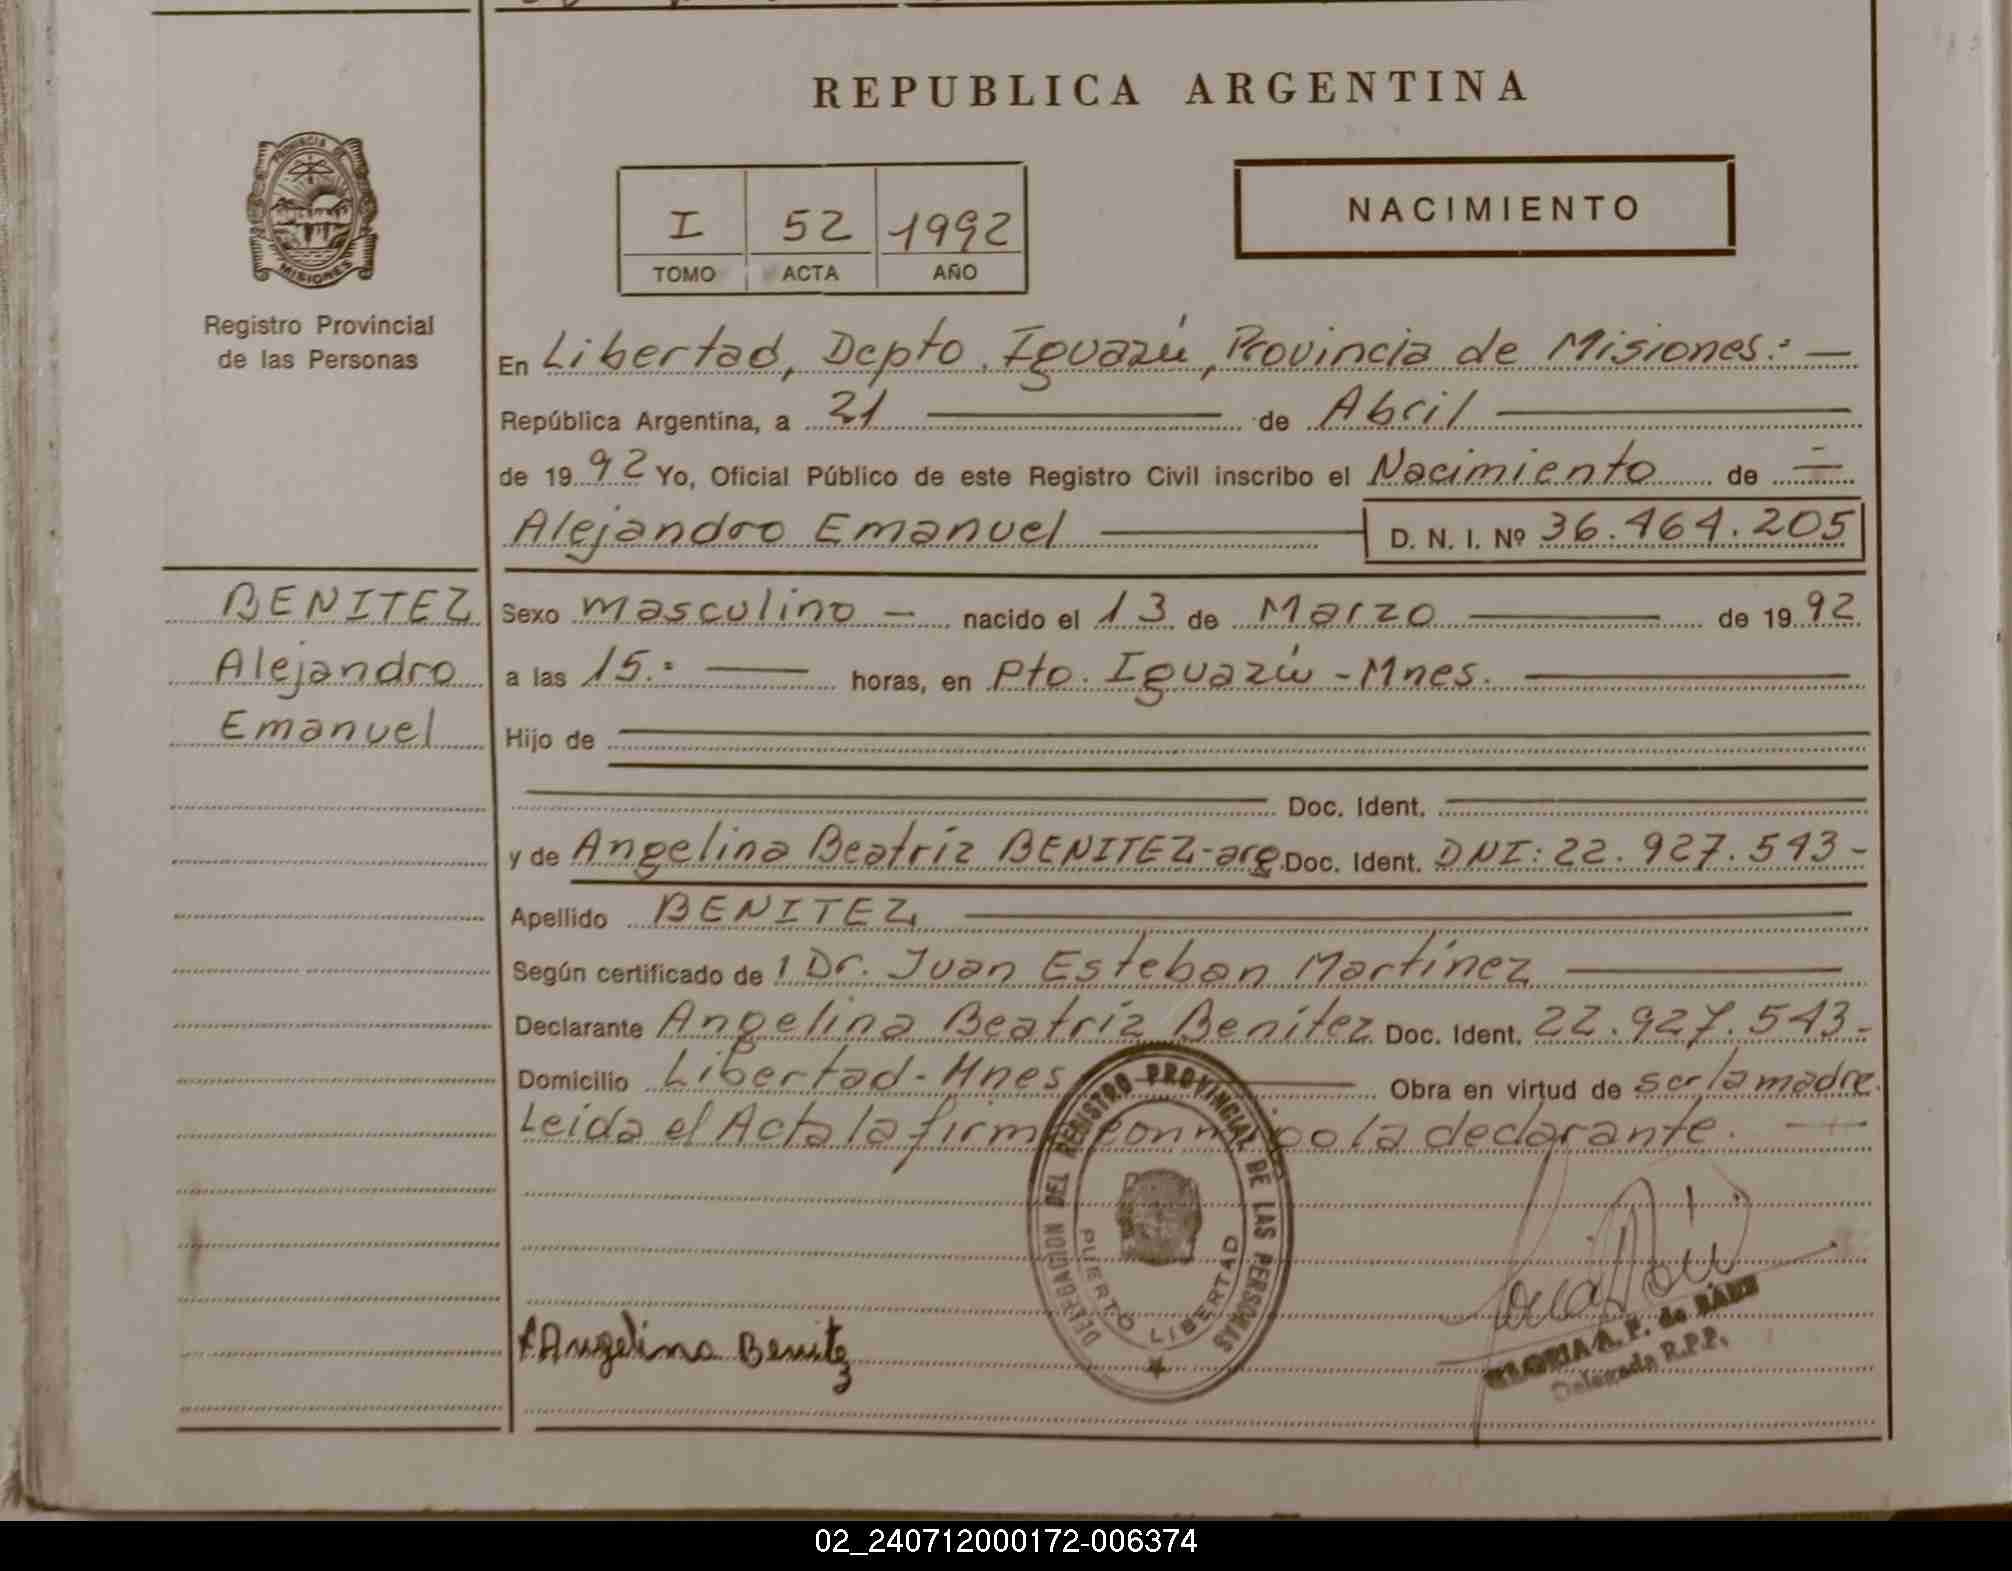 REPUBLICA ARGENTINA
PROVINCIA DE
MISIONES
Registro Provincial
de las Personas
I 52 1992
TOMO ACTA AÑO
NACIMIENTO
En Libertad, Depto. Iguazú, Provincia de Misiones.-
República Argentina, a 21 de Abril
de 1992 Yo, Oficial Público de este Registro Civil inscribo el Nacimiento de
Alejandro Emanuel D. N. I. Nº 36.464.205
BENITEZ
Alejandro
Emanuel
Sexo masculino - nacido el 13 de Marzo de 1992
a las 15.- horas, en Pto. Iguazú - Mnes.
Hijo de
Doc. Ident.
y de Angelina Beatriz BENITEZ-arg. Doc. Ident. DNI: 22.927.543-
Apellido BENITEZ
Según certificado de 1 Dr. Juan Esteban Martínez
Declarante Angelina Beatríz Benítez Doc. Ident. 22.927.543-
Domicilio Libertad-Mnes Obra en virtud de ser la madre.
Leida el Acta la firma conmigo la declarante.
DELEGACION DEL REGISTRO PROVINCIAL DE LAS PERSONAS
PUERTO LIBERTAD
Angelina Benitez
GLORIA A. P. de BAEZ
Delegada R.P.P.
02_240712000172-006374